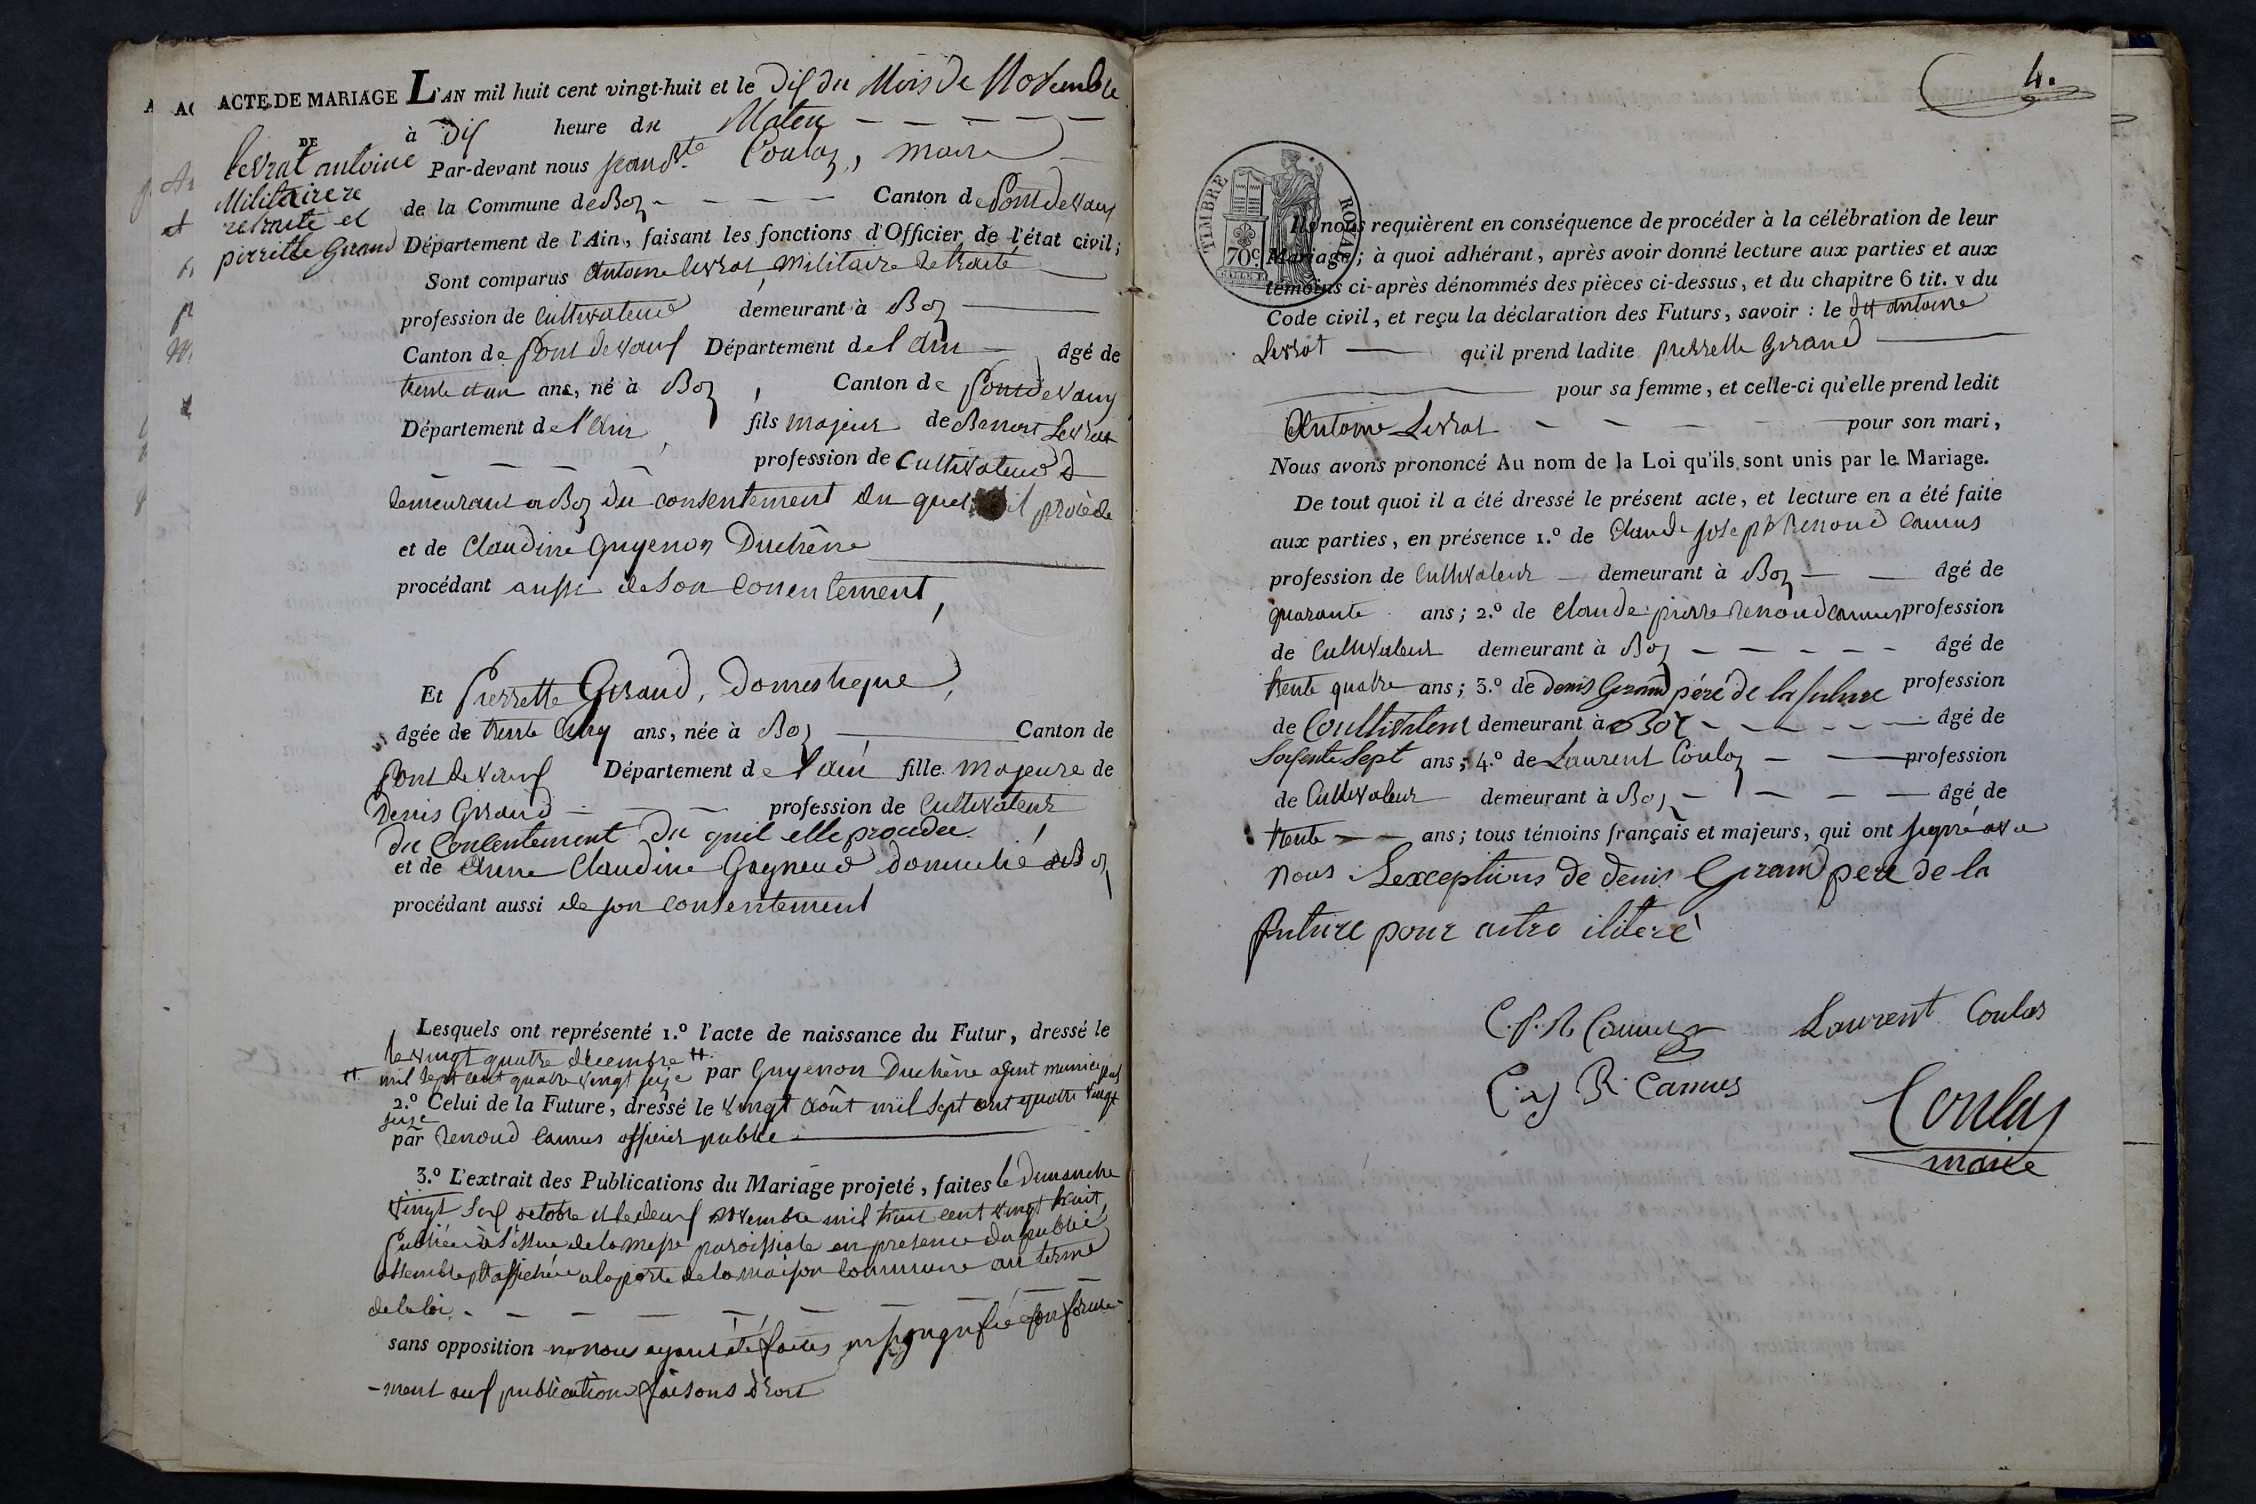 ACTE DE MARIAGE L'AN mil huit cent vingt-huit et le dix du Mois de Novembre
DE
à Dix heure du Matin
Levrat antoine
Militaire re
retraité et
pierrette Giraud
Par-devant nous jean Bte Coulas, maire
de la Commune de Boz Canton de Pont de vaux
Département de l'Ain, faisant les fonctions d'Officier de l'état civil;
Sont comparus Antoine Levrat Militaire Retraité
profession de Cultivateur demeurant à Boz
Canton de Pont de vaux Département de l'ain âgé de
trente et un ans, né à Boz, Canton de Pont de vaux
Département de l'Ain, fils majeur de Benoit Levrat
profession de Cultivateur
demeurant a Boz du consentement du quel il procède
et de Claudine Guyenon Duchêne
procédant aussi de son consentement,
Et Pierrette Giraud, Domestique,
âgée de trente Cinq ans, née à Boz Canton de
Pont de vaux Département de l'ain fille majeure de
Denis Giraud profession de Cultivateur
du Consentement du quil elle procedee
et de Anne Claudine Gagneud domicilié a Boz
procédant aussi de son consentement
Lesquels ont représenté 1.º l'acte de naissance du Futur, dressé le
le vingt quatre decembre #
# mil sept cent quatre vingt seize par Guyenon Duchêne agent municipal
2.º Celui de la Future, dressé le vingt Août mil sept cent quatre vingt
seize
par Renoud Camus officier public
3.º L'extrait des Publications du Mariage projeté, faites le Dimanche
vingt six octobre et le deux novembre mil huit cent vingt huit
Publiée à l'issue de la messe paroissiale en presence du public
assemblé et affichée a la porte de la maison Commune au terme
de la loi
sans opposition ne nous ayant été faites ni signifié conforme-
-ment aux publications faisons droit
4.
TIMBRE ROYAL
70 c.
Ils nous requièrent en conséquence de procéder à la célébration de leur
Mariage; à quoi adhérant, après avoir donné lecture aux parties et aux
témoins ci-après dénommés des pièces ci-dessus, et du chapitre 6 tit. v du
Code civil, et reçu la déclaration des Futurs, savoir : le dit Antoine
Levrat qu'il prend ladite pierrette Giraud
pour sa femme, et celle-ci qu'elle prend ledit
Antoine Levrat pour son mari,
Nous avons prononcé Au nom de la Loi qu'ils sont unis par le Mariage.
De tout quoi il a été dressé le présent acte, et lecture en a été faite
aux parties, en présence 1.º de Claude joseph Renoud Camus
profession de Cultivateur demeurant à Boz âgé de
quarante ans; 2.º de claude pierre renoud camus profession
de Cultivateur demeurant à Boz âgé de
trente quatre ans; 3.º de denis Giraud pére de la future profession
de Coultivateur demeurant à Boz âgé de
Soixente Sept ans; 4.º de Laurent Coulas profession
de Cultivateur demeurant à Boz âgé de
trente ans; tous témoins français et majeurs, qui ont signé ave
nous Lexceptions de denis Giraud pere de la
future pour aitre iliteré
C. P. R Camus Laurent Coulas
C. J R. Camus
Coulas
maire